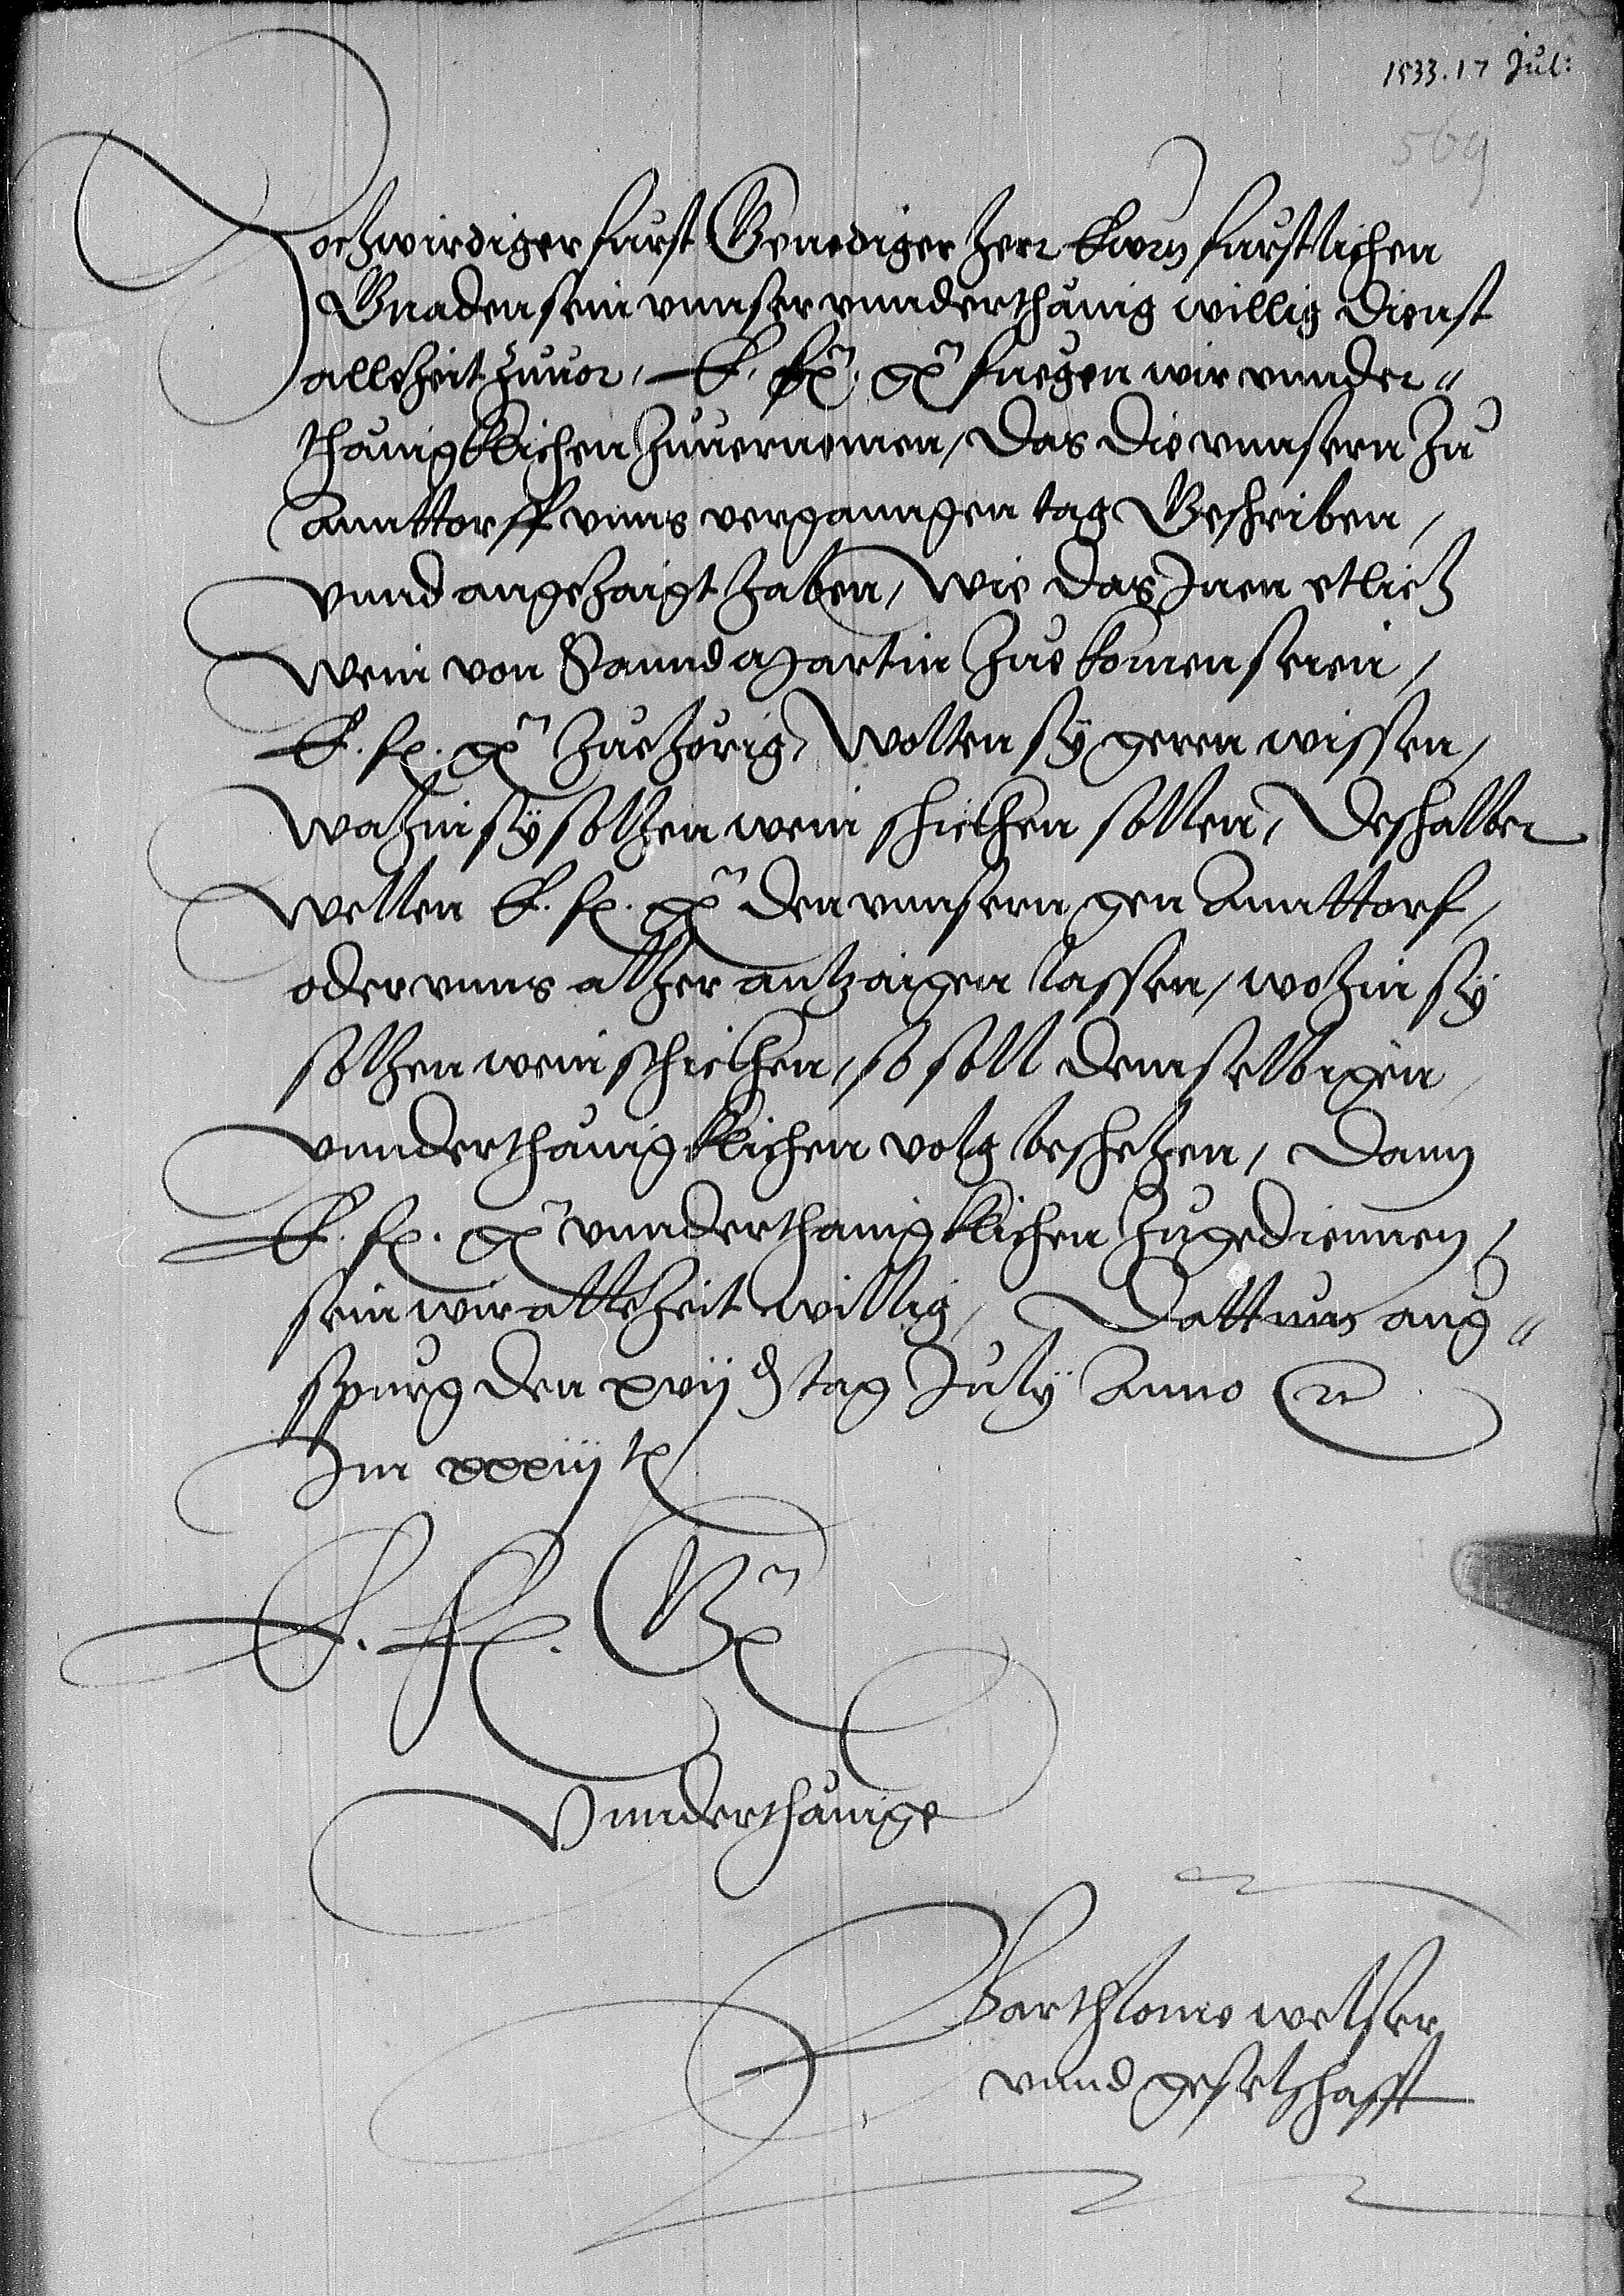 1533. 17 Jul:
569
Hochwirdiger furst Genediger herr Ewrn furstlichen
Gnaden sein vnnser vnnderthånig willig dienst
alletzeit zuuor, E. fr. gn fuegen wir vnnder-
thånigklichen zuuernemen, das die vnnsern zu
Annttorff vnns verganngen tag Geschriben,
vnnd angetzaigt haben, wie das Inen etlich
wein von Sannd Martin zue komen seien,
E. fr. gn zuehörig, wolten sy geren wissen,
wahin sy solhen wein schickhen sollen, deshalben
wellen E. fr. gn den vnnsern gen Annttorf,
oder vnns alher antzaigen lassen, wohin sy
solhen wein schickhen, so soll demselbigen
vnnderthånigklichen volg beschehen, Dann
E. fr. gn vnnderthanigklichen zugediennen,
sein wir alletzeit willig, Dattum aug-
spurg den xvij tag July Anno rc
Im xxxiij te
E. fr. Gn
Vnnderthånige
Barthlome welser
vnnd geselschafft